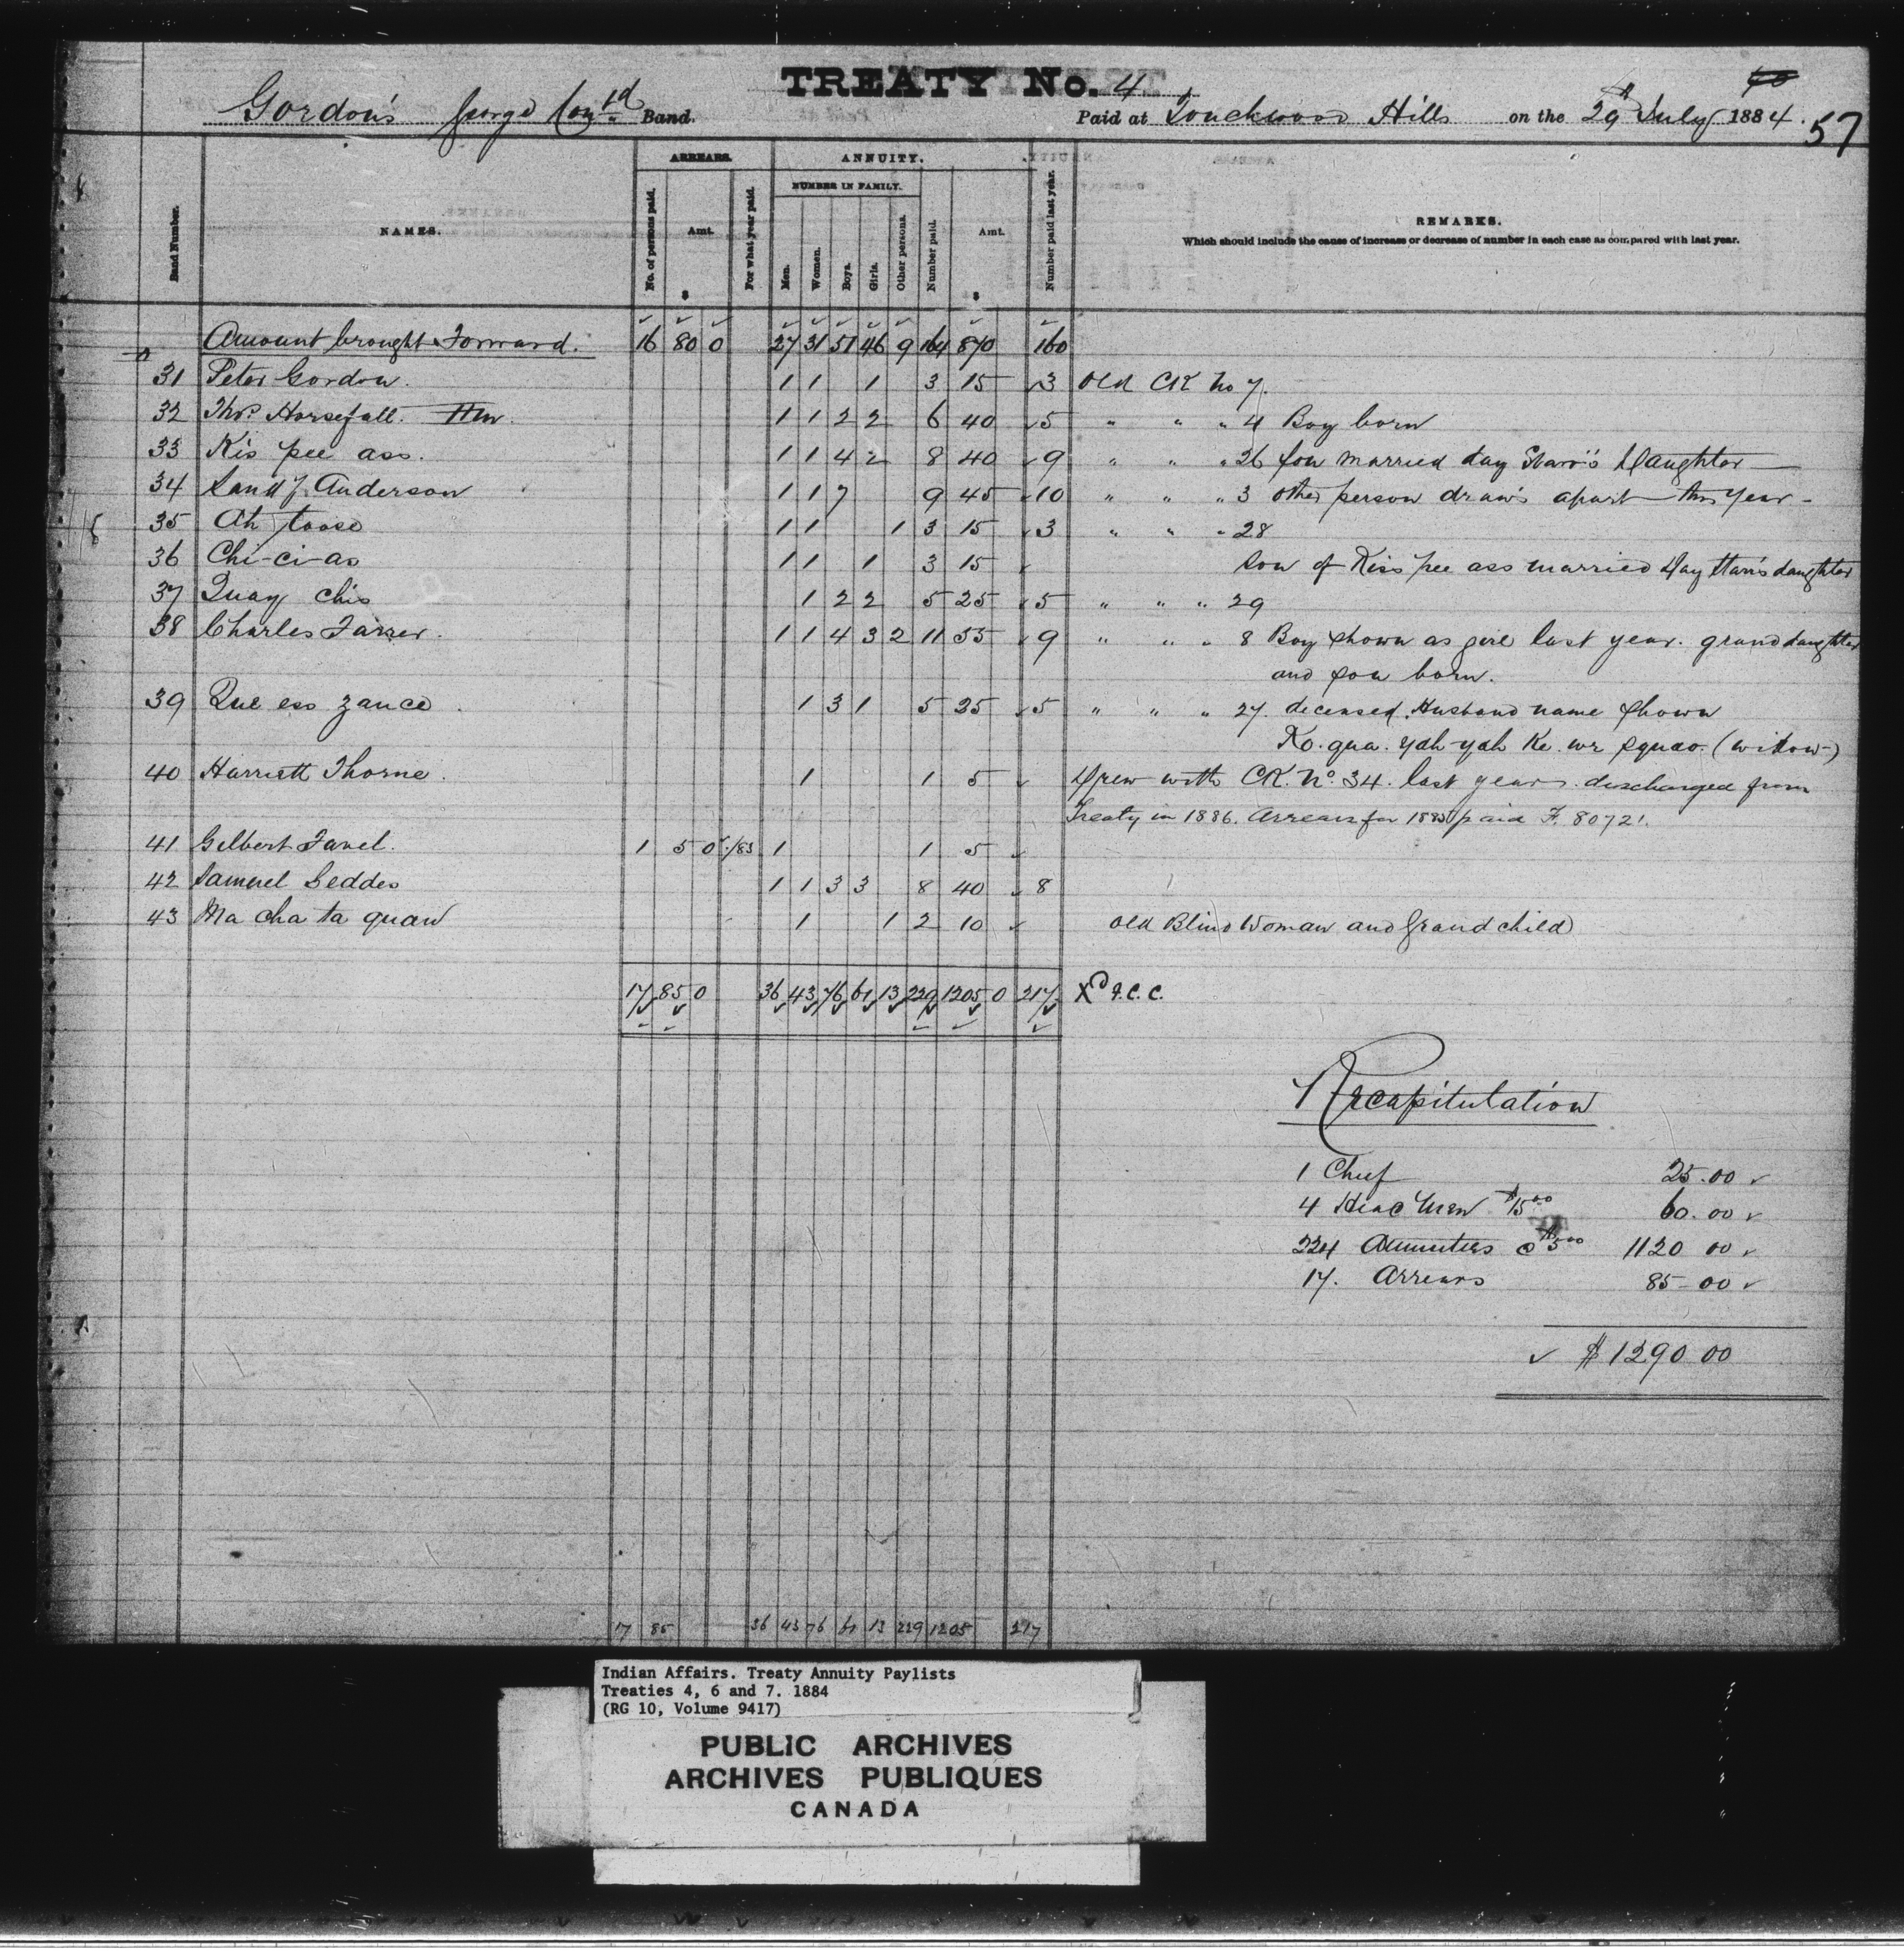 TREATY No. 4
60
Gordon's George Cont'd Band. Paid at Touchwood Hills on the 29th July 1884. 57
ARREARS. ANNUITY.
NUMBER IN FAMILY.
Band Number. NAMES. No. of persons paid. Amt. $ For what year paid. Men. Women. Boys. Girls. Other persons. Number paid. Amt. $ Number paid last year. REMARKS.
Which should include the cause of increase or decrease of number in each case as compared with last year.
Amount brought Forward. 16 80 0 27 31 51 46 9 164 870 160
31 Peter Gordon. 1 1 1 3 15 3 Old CK No 7.
32 Thos. Horsefall. Hm. 1 1 2 2 6 40 5 " " " 4 Boy born
33 Kis pee ass. 1 1 4 2 8 40 9 " " " 26 Son married day Starr's Daughter
34 Sandy Anderson 1 1 7 9 45 10 " " " 3 other person draws apart this year -
35 Ah toose 1 1 1 3 15 3 " " " 28
36 Chi-ci-as 1 1 1 3 15 Son of Kiss pee ass married Day Starr's daughter
37 Quay chis 1 2 2 5 25 5 " " " 29
38 Charles Farrer. 1 1 4 3 2 11 55 9 " " " 8 Boy shown as girl last year. grand daughter
and son born.
39 Que ess zance 1 3 1 5 25 5 " " " 27. deceased Husband name shown
Ko. qua. yah-yah Ke. we squao. (widow)
40 Harriett Thorne. 1 1 5 Drew with CK. No. 34. last year. discharged from
Treaty in 1886. Arrears for 1885 paid F. 80721.
41 Gilbert Favel. 1 5 0 /83 1 1 5
42 Samuel Geddes 1 1 3 3 8 40 8
43 Ma cha ta quaw 1 1 2 10 Old Blind Woman and Grand child
17 85 0 36 43 76 61 13 229 1205 0 217 Xd F.C.C.
Recapitulation
1 Chief 25.00
4 Head Men $15 00 60.00
224 Annuities @ $5 00 1120 00
17. Arrears 85-00
$1290 00
17 85 36 43 76 61 13 229 1205 217
Indian Affairs. Treaty Annuity Paylists
Treaties 4, 6 and 7. 1884
(RG 10, Volume 9417)
PUBLIC ARCHIVES
ARCHIVES PUBLIQUES
CANADA